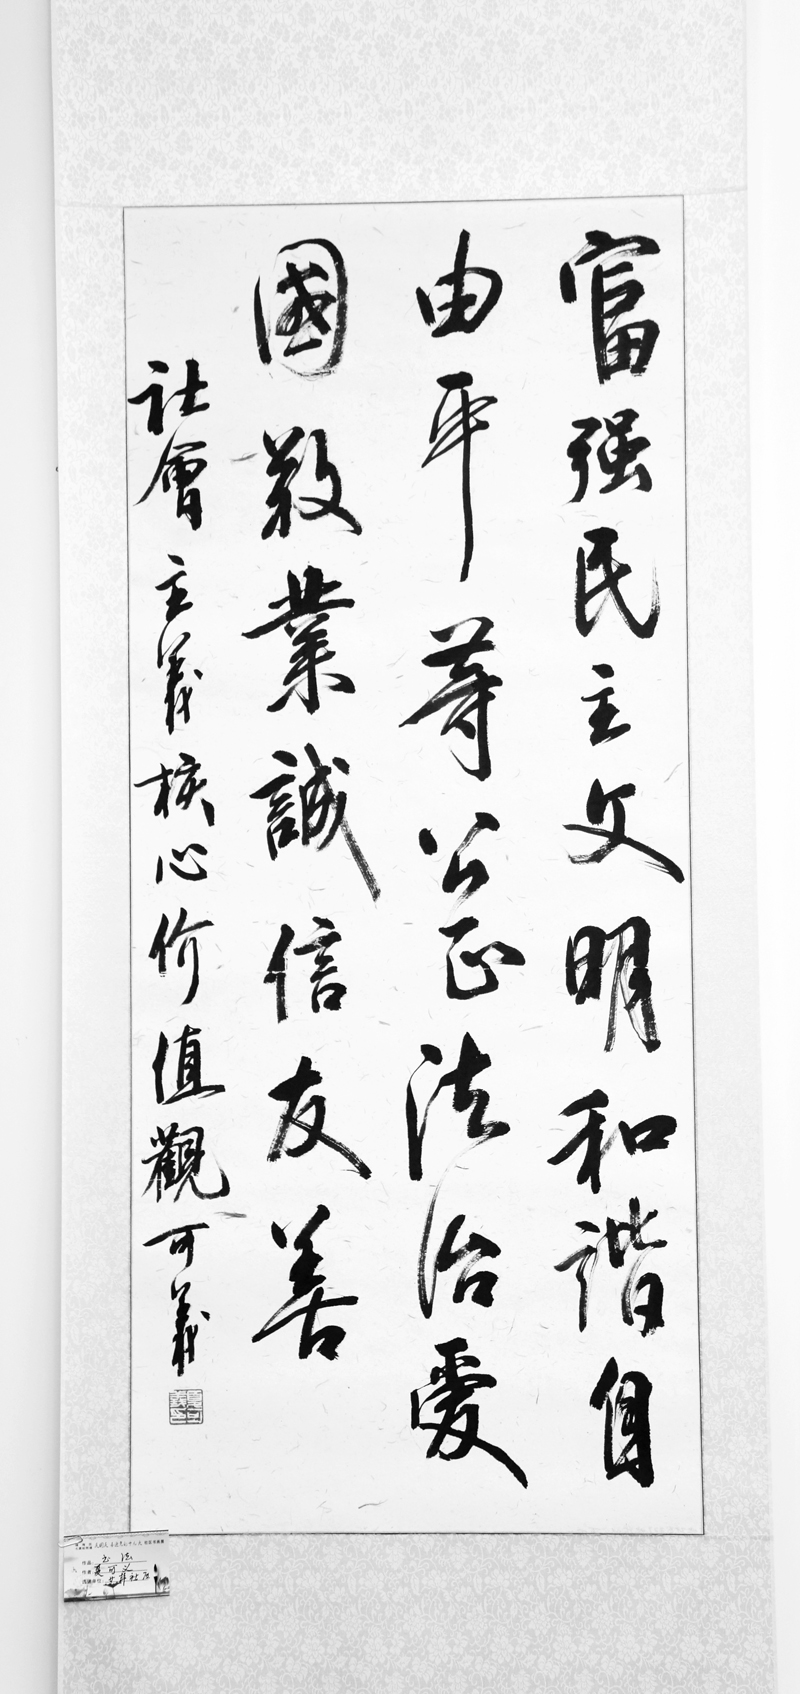 富强民主文明和諧自
由平等公正法治愛
國敬業誠信友善
社會主義核心价值觀可義
作品 书法
作者 夏可义